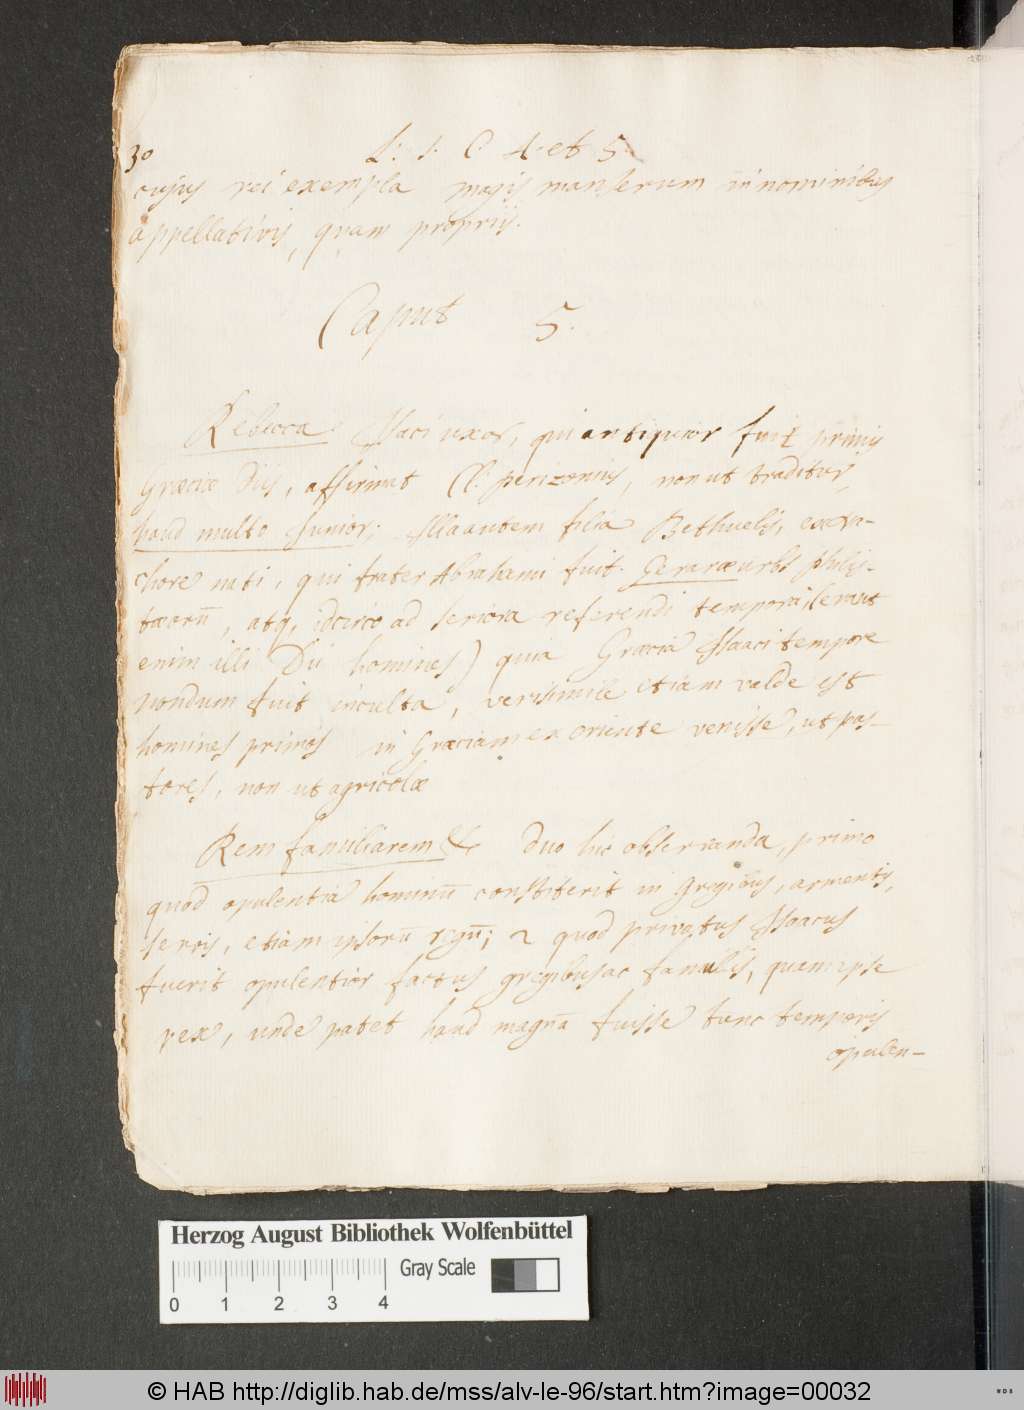 30
L: 1. C. 4. et 5.
cujus rei exempla magis manserunt in nominibus
appellativis, quam propriis.
Caput 5.
Rebecca Isaaci uxor, qui antiquior fuit primis
Græciæ Diis, affirmat Cl: perizonius, non ut traditur,
haud multo Junior; Illa autem filia Bethuelis, ex Na-
chore nati, qui frater Abrahami fuit. Geraræ urbs Philis-
tæorū, atq, idcirco ad seriora referendi tempora, (erant
enim illi Dii homines) quia Græcia Isaaci tempore
nondum fuit inculta, verisimile etiam valde est
homines primos in Græciam ex oriente venisse, ut pas-
tores, non ut agricolæ
Rem familiarem &c duo hic observanda, primo
quod opulentia hominū constiterit in gregibus, armentis,
servis, etiam ipsorū regū; 2 quod privatus Isaacus
fuerit opulentior factus gregibus ac famulis, quam ipse
rex, unde patet haud magnā fuisse tunc temporis
opulen-
Herzog August Bibliothek Wolfenbüttel
Gray Scale
0 1 2 3 4
© HAB http://diglib.hab.de/mss/alv-le-96/start.htm?image=00032